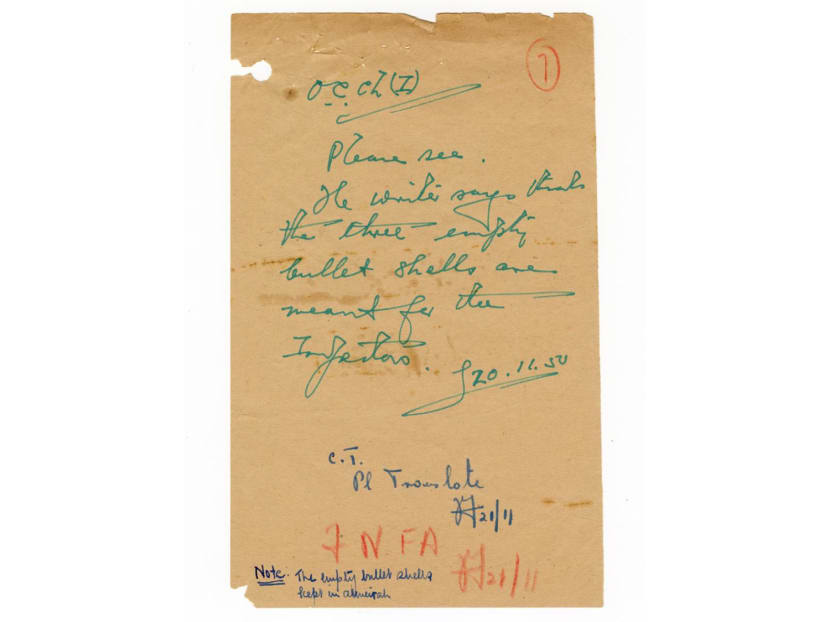 7
O.C. CI (I)
Please see.
The writer says that
the three empty
bullet shells are
meant for the
Inspectors.
20.11.50
C.T.
Pl Translate
21/11
F N FA
21/11
Note. The empty bullet shells
kept in almeirah